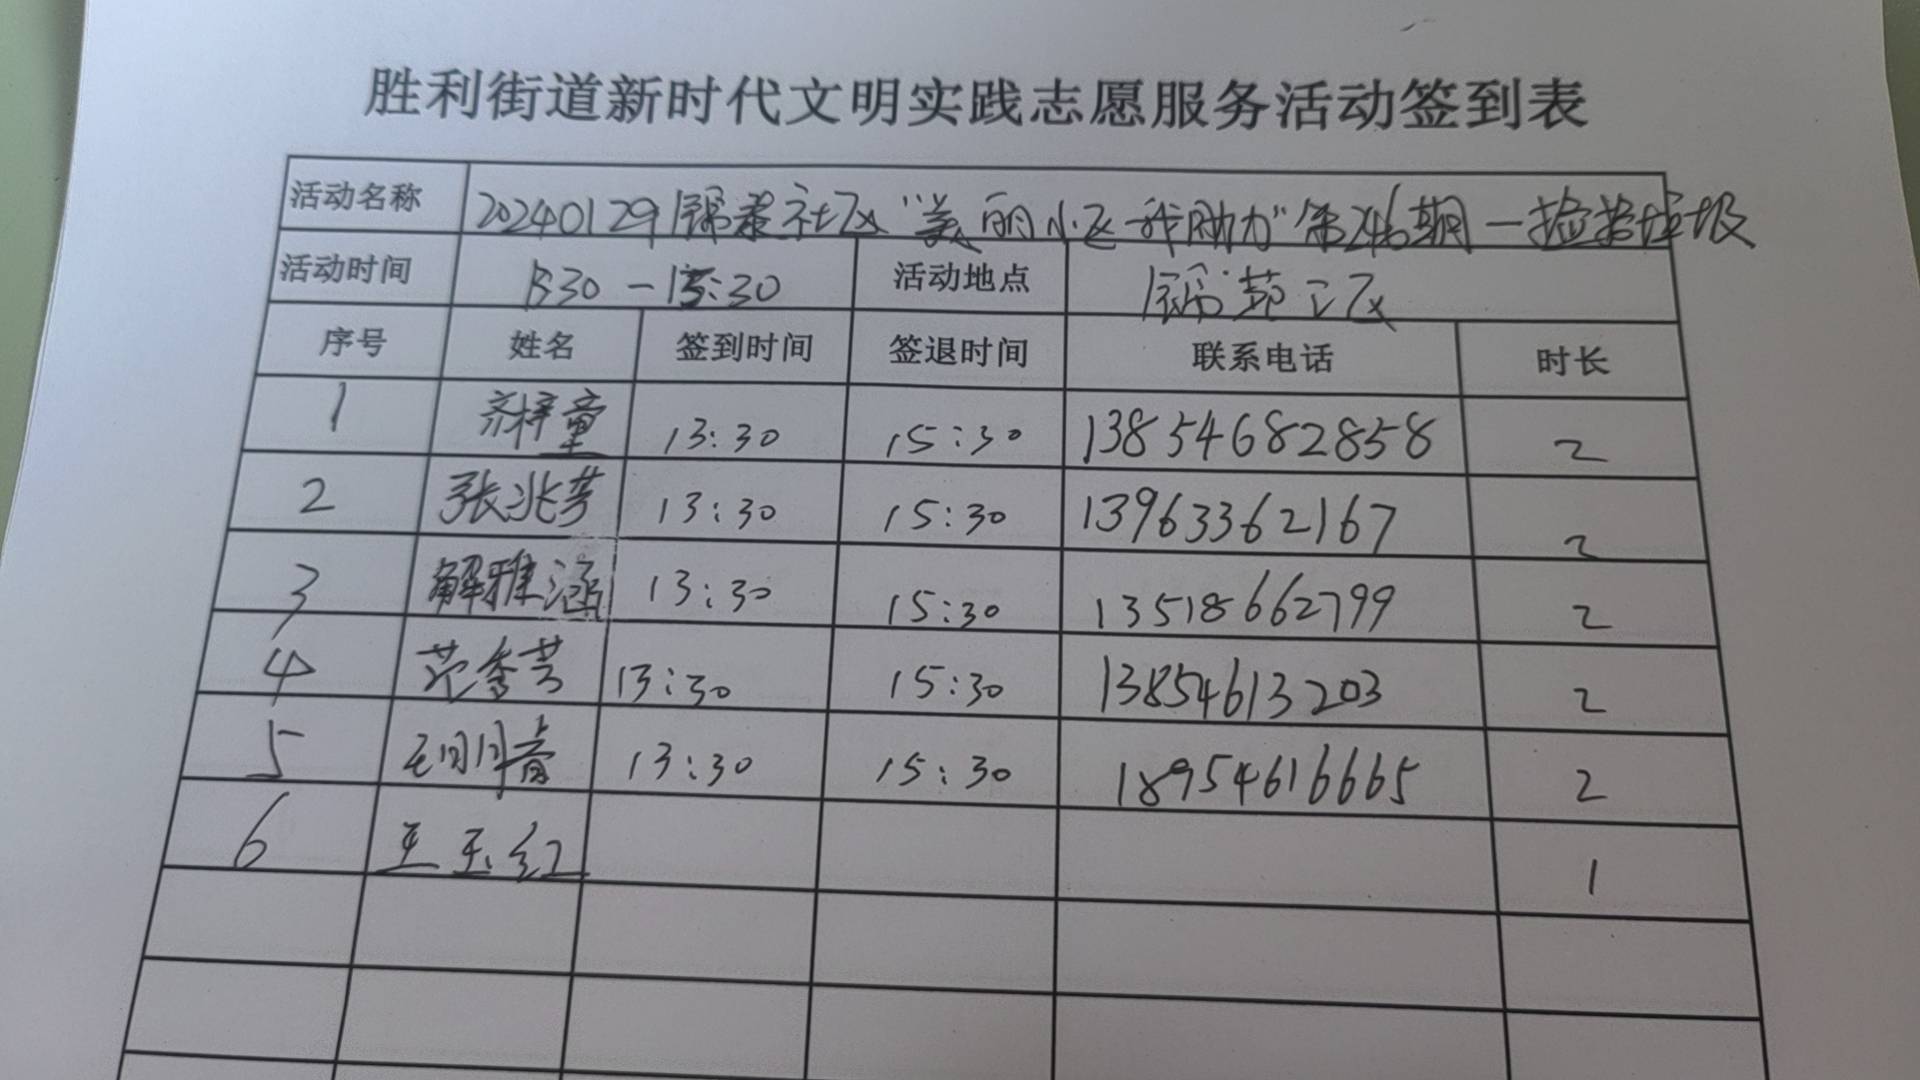 胜利街道新时代文明实践志愿服务活动签到表
活动名称 20240129锦苑社区“美丽小区 我助力”第246期—捡拾垃圾
活动时间 13:30 — 15:30 活动地点 锦苑二区
序号 姓名 签到时间 签退时间 联系电话 时长
1 齐梓童 13:30 15:30 13854682858 2
2 张兆芳 13:30 15:30 13963362167 2
3 解雅涵 13:30 15:30 13518662799 2
4 范秀芳 13:30 15:30 13854613203 2
5 13:30 15:30 18954616665 2
6 王玉红 1